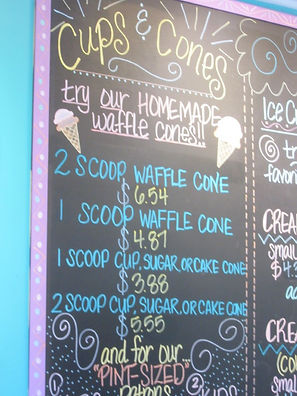 Cups & Cones
try our HOMEMADE
waffle cones!!
2 SCOOP WAFFLE CONE
$6.54
1 SCOOP WAFFLE CONE
$4.87
1 SCOOP CUP, SUGAR, OR CAKE CONE
$3.88
2 SCOOP CUP, SUGAR, OR CAKE CONE
$5.55
and for our...
"PINT-SIZED"
patrons
Ice C
tr
favori
CREA
small
$4.
CREA
(CO
small